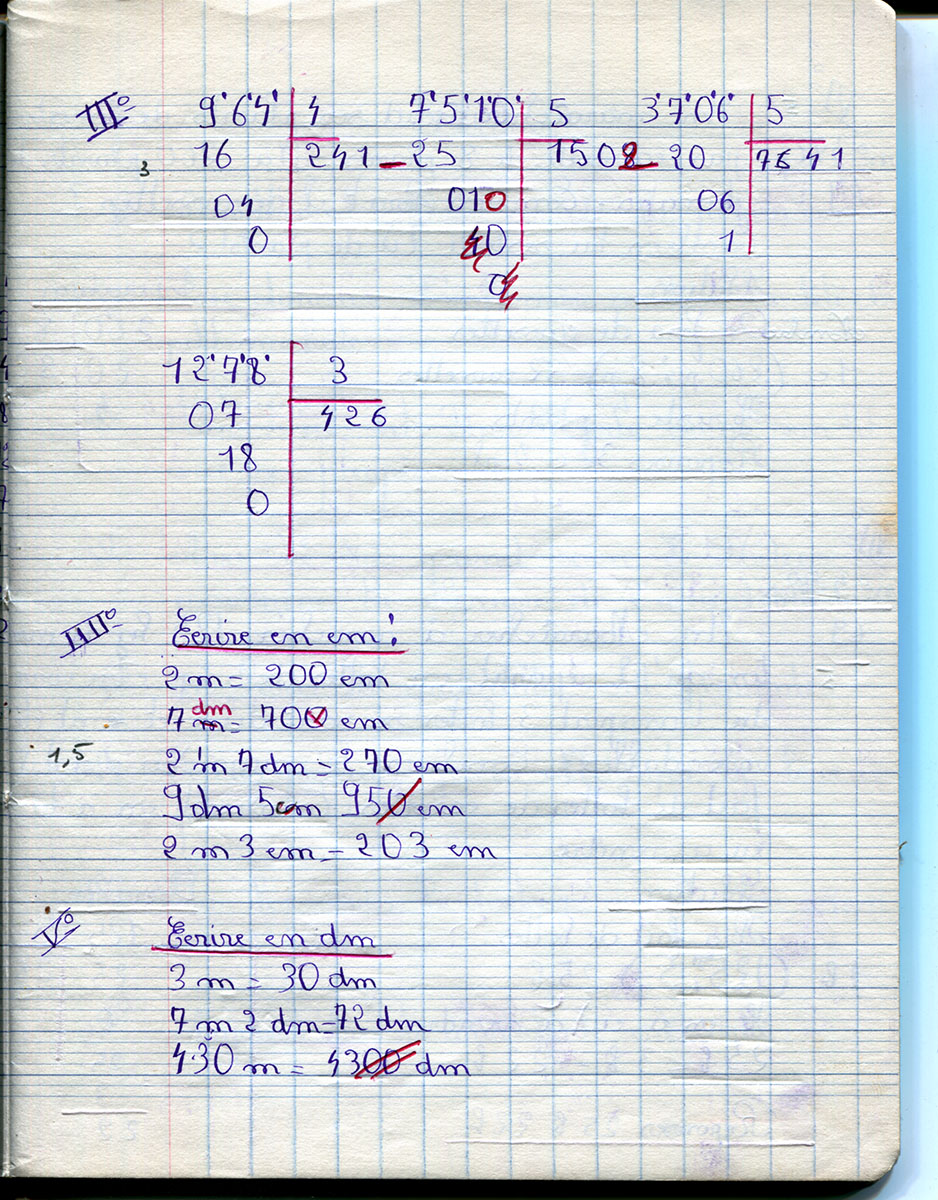 III° 9'6'4' 4 7'5'1'0' 5 3'7'0'6' 5
3 16 241 - 25 1502 - 20 7641
04 010 06
0 40 1
0
12'7'8' 3
07 426
18
0
IIII° Ecrire en cm :
2 m = 200 cm
7 dm = 700 cm
1,5 2 m 7 dm = 270 cm
9 dm 5 cm 950 cm
2 m 3 cm = 203 cm
V° Ecrire en dm
3 m = 30 dm
7 m 2 dm = 72 dm
430 m = 4300 dm